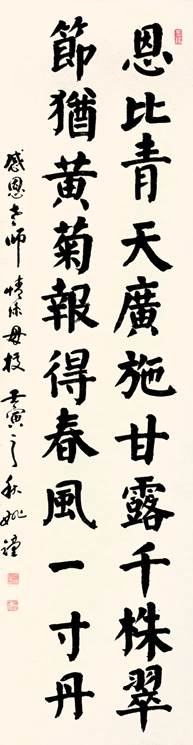 恩比青天廣施甘露千株翠
節猶黄菊報得春風一寸丹
感恩老師情係母校壬寅之秋姚瓊